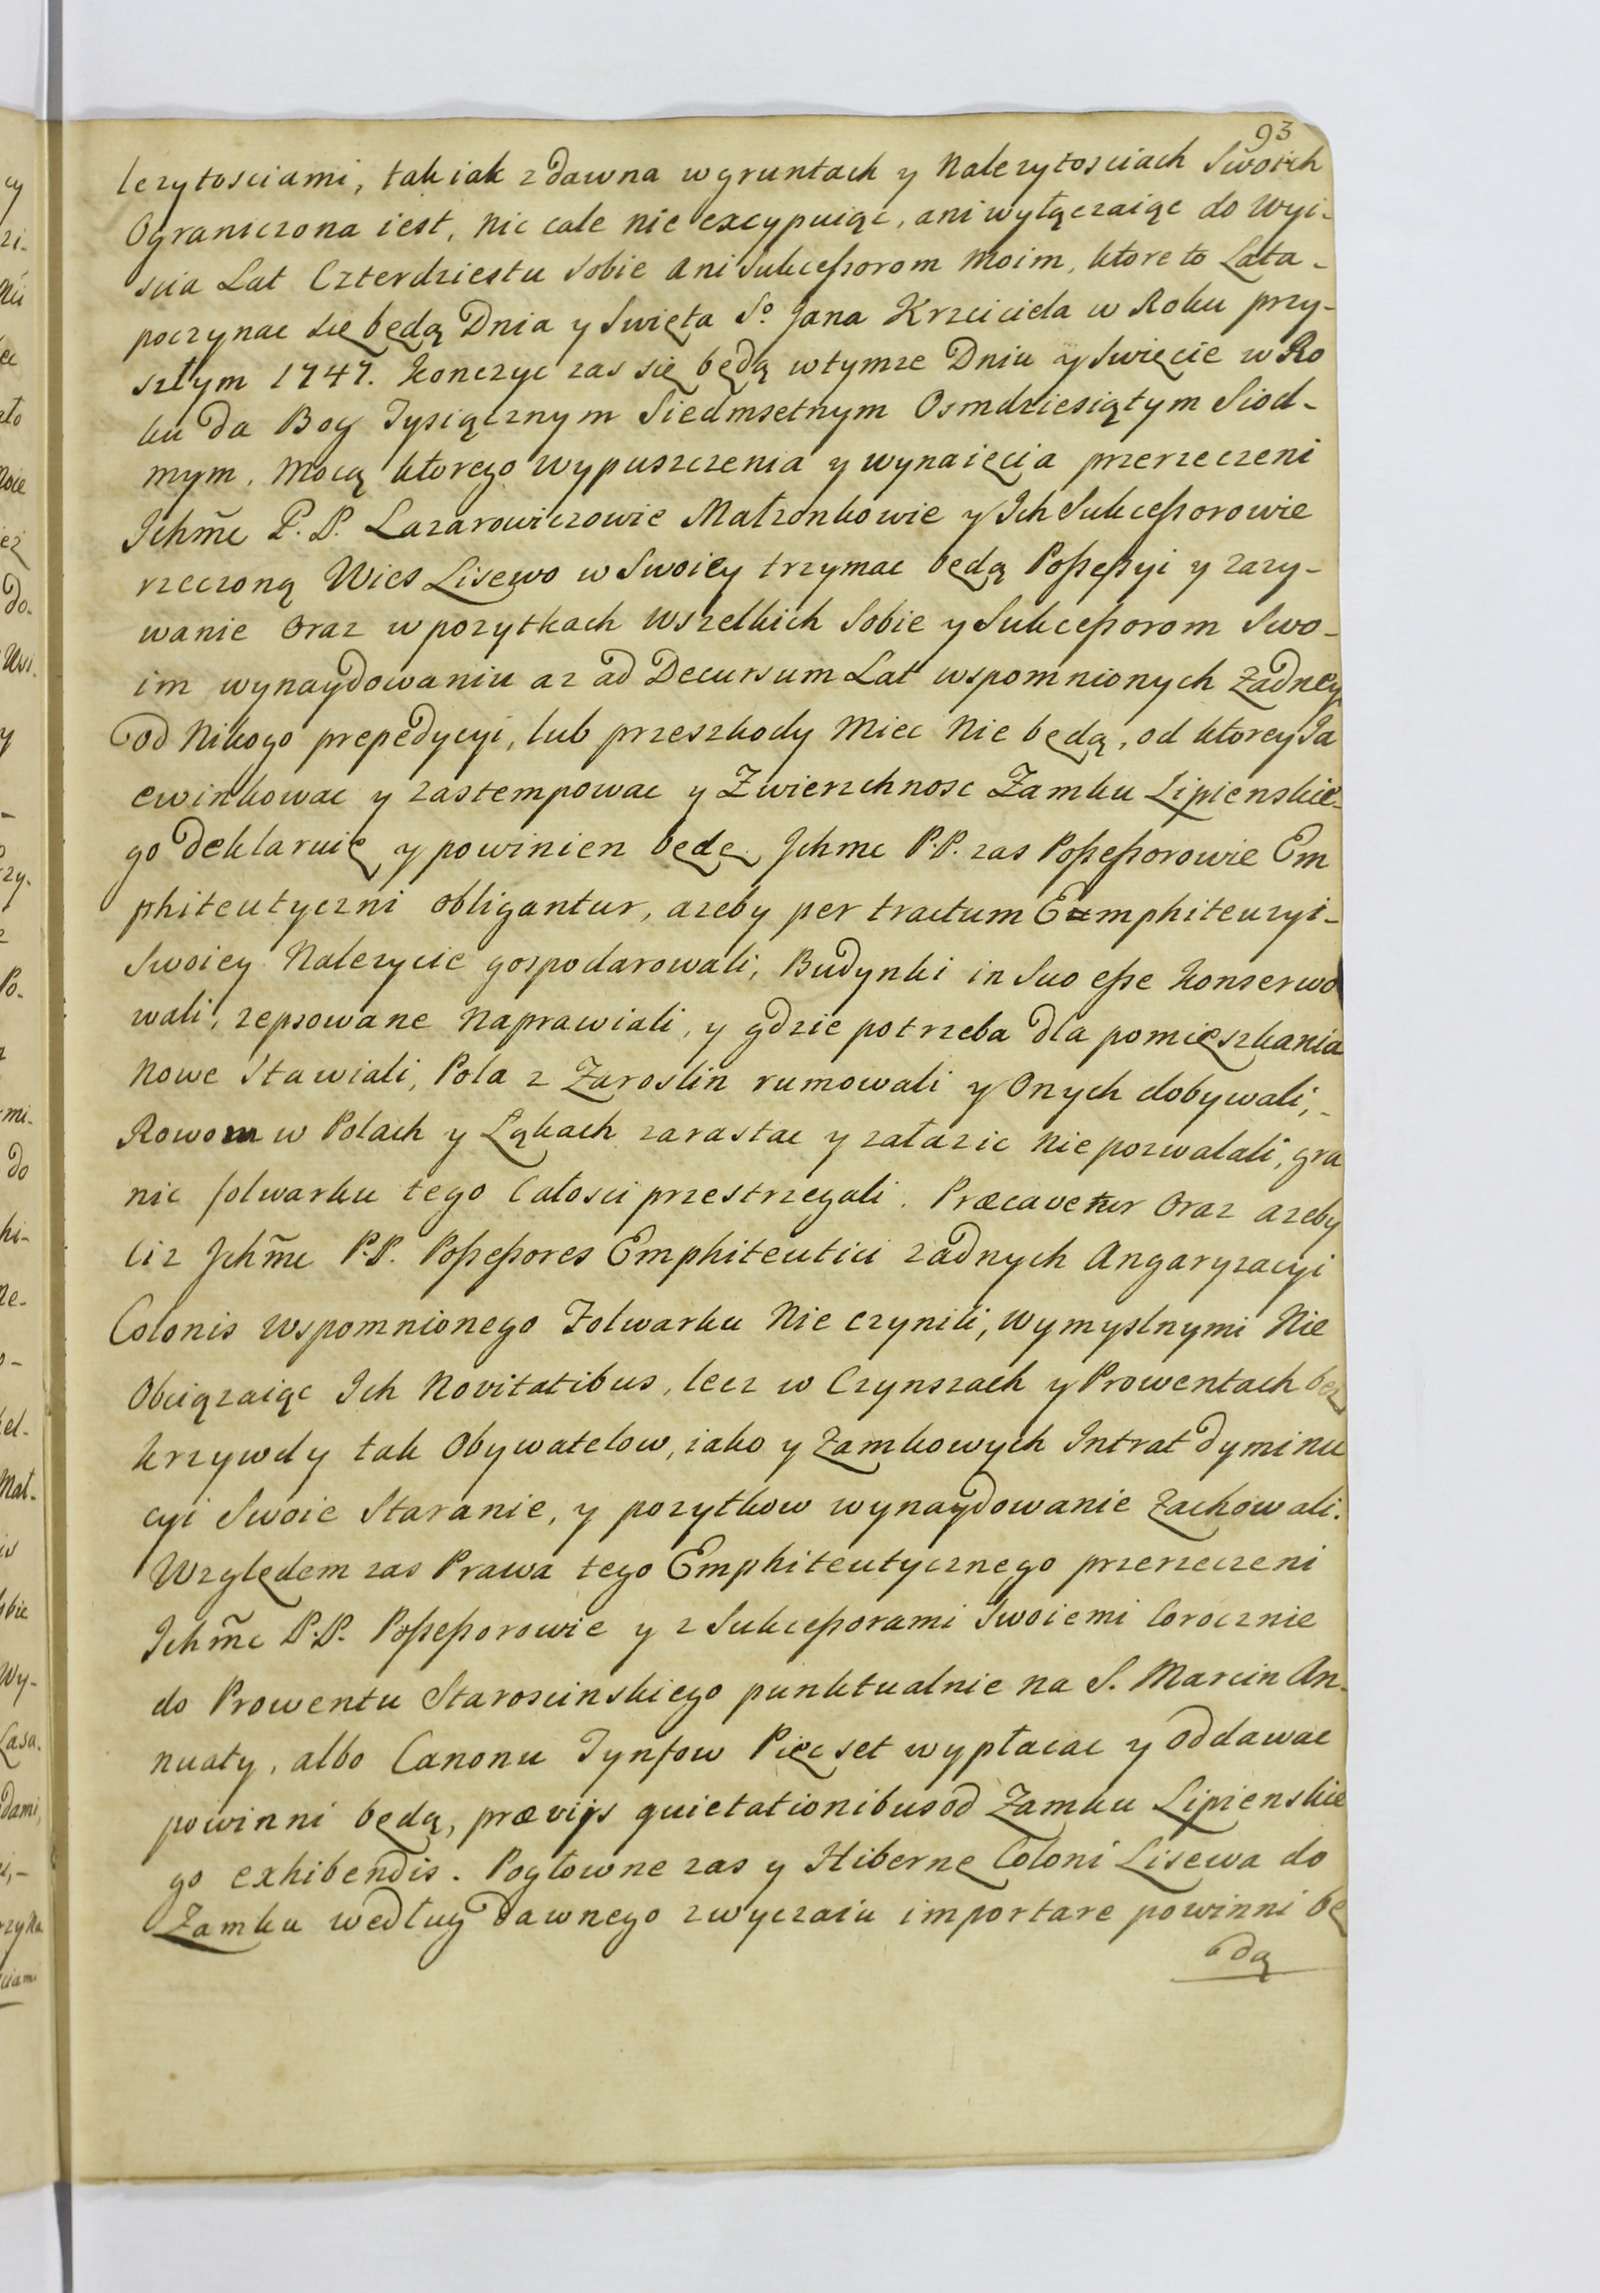 93
lezytosciami, tak iak zdawna w gruntach y Nalezytosciach Swoich
Ograniczona iest, Nic cale nie excypuiąc, ani wyłączaiąc do Wyi-
scia Lat Czterdziestu Sobie Ani Sukceßorom Moim, ktore to Lata-
poczynac się będą Dnia y Swięta So. Jana Krzciciela w Roku przy-
szłym 1747. Konczyc zas się będą wtymze Dniu y Swięcie w Ro
ku da Bog Tysiącznym Siedmsetnym Osmdziesiątym Siod-
mym, Mocą ktorego wypuszczenia y wynaięcia przerzeczeni
Ichm̃c P.P. Lazarowiczowie Małzonkowie y Ich Sukceßorowie
rzeczoną Wies Lisewo w Swoiey trzymac będą Poßeßyi y zazy-
wanie oraz w pozytkach wszelkich Sobie y Sukceßorom Swo-
im wynaydowaniu az ad Decursum Lat wspomnionych Zadney
od Nikogo prepedycyi, lub przeszkody Miec Nie będą, od ktorey Ja
ewinkowac y zastempowac y Zwierzchnosc Zamku Lipienskie-
go deklaruię y powinien będę. Jchmc P.P. zas Poßeßorowie Em
phiteutyczni obligantur, azeby per tractum Emphiteuzyi-
Swoiey Nalezycie gospodarowali, Budynki in Suo eße konserwo
wali, zepsowane Naprawiali, y gdzie potrzeba dla pomięszkania
Nowe Stawiali, Pola z Zaroslin rumowali y Onych dobywali,-
Rowom w Polach y Łąkach zarastac y załazic Nie pozwalali, gra
nic folwarku tego Całosci przestrzegali. Præcavetur Oraz azeby
ciz Jchm̃c P.P. Poßeßores Emphiteutici zadnych Angaryzacyi
Colonis wspomnionego Folwarku Nie czynili, Wymyslnymi Nie
Obciązaiąc Ich Novitatibus, lecz w Czynszach y Prowentach bez
krzywdy tak Obywatelow, iako y Zamkowych Intrat dyminu
cyi Swoie Staranie, y pozytkow wynaydowanie Zachowali.
Względem zas Prawa tego Emphiteutycznego przerzeczeni
Ichm̃c P.P. Poßeßorowie y z Sukceßorami Swoiemi Corocznie
do Prowentu Staroscinskiego punktualnie na S. Marcin An-
nuaty, albo Canonu Tynfow Pięcset wypłacac y oddawac
powinni będą, prævijs quietationibus od Zamku Lipienskie
go exhibendis. Pogłowne zas y Hibernę Coloni Lisewa do
Zamku według dawnego zwyczaiu importare powinni bę
dą